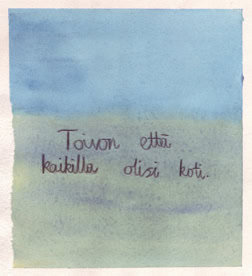 Toivon että
kaikilla olisi koti.